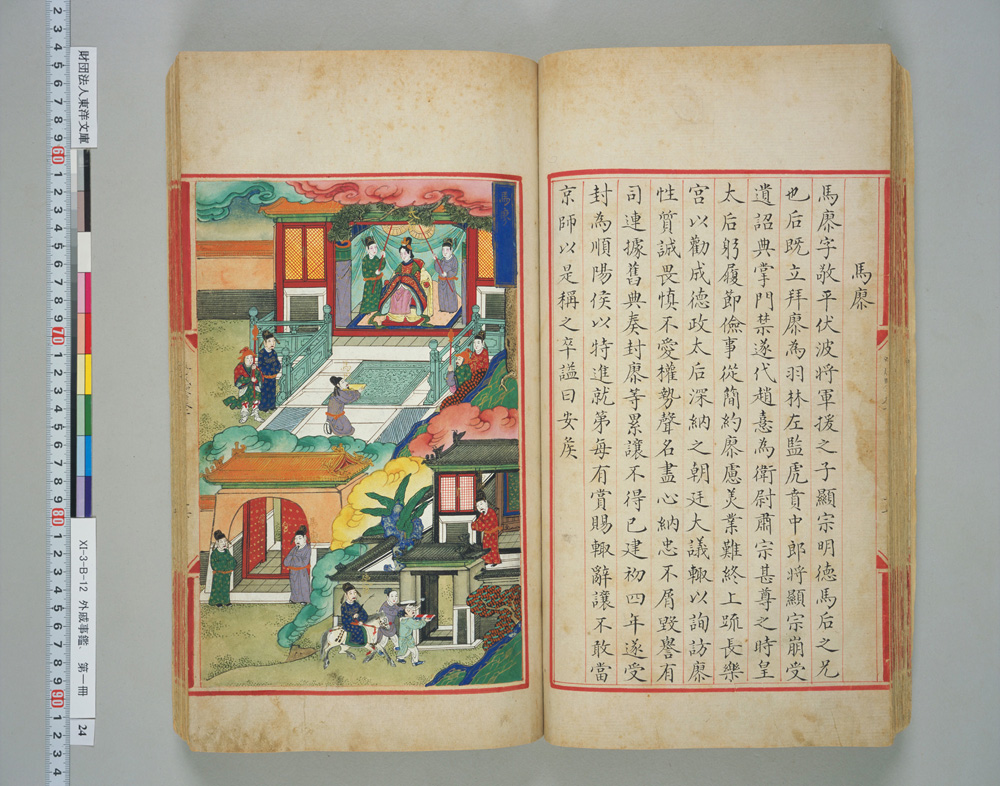 馬廖
馬廖字敬平伏波將軍援之子顯宗明德馬后之兄
也后既立拜廖為羽林左監虎賁中郎將顯宗崩受
遺詔典掌門禁遂代趙憙為衛尉肅宗甚尊之時皇
太后躬履節儉事從簡約廖慮美業難終上疏長樂
宮以勸成德政太后深納之朝廷大議輒以詢訪廖
性質誠畏慎不愛權勢聲名盡心納忠不屑毀譽有
司連據舊典奏封廖等累讓不得已建初四年遂受
封為順陽侯以特進就第每有賞賜輒辭讓不敢當
京師以是稱之卒謚曰安矦
馬廖
財団法人東洋文庫
XI-3-B-12 外戚事鑑、 第一冊
24
2 3 4 5 6 7 8 9 60 1 2 3 4 5 6 7 8 9 70 1 2 3 4 5 6 7 8 9 80 1 2 3 4 5 6 7 8 9 90 1 2 3 4